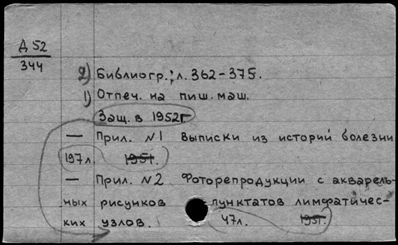 Д 52
344
2) Библиогр.; л. 362-375.
1) Отпеч. на пиш. маш.
Защ. в 1952г
— Прил. №1 Выписки из историй болезни
197 л. 1951.
— Прил. №2 Фоторепродукции с акварель-
ных рисунков пунктатов лимфатичес-
ких узлов. 47л. 1951.